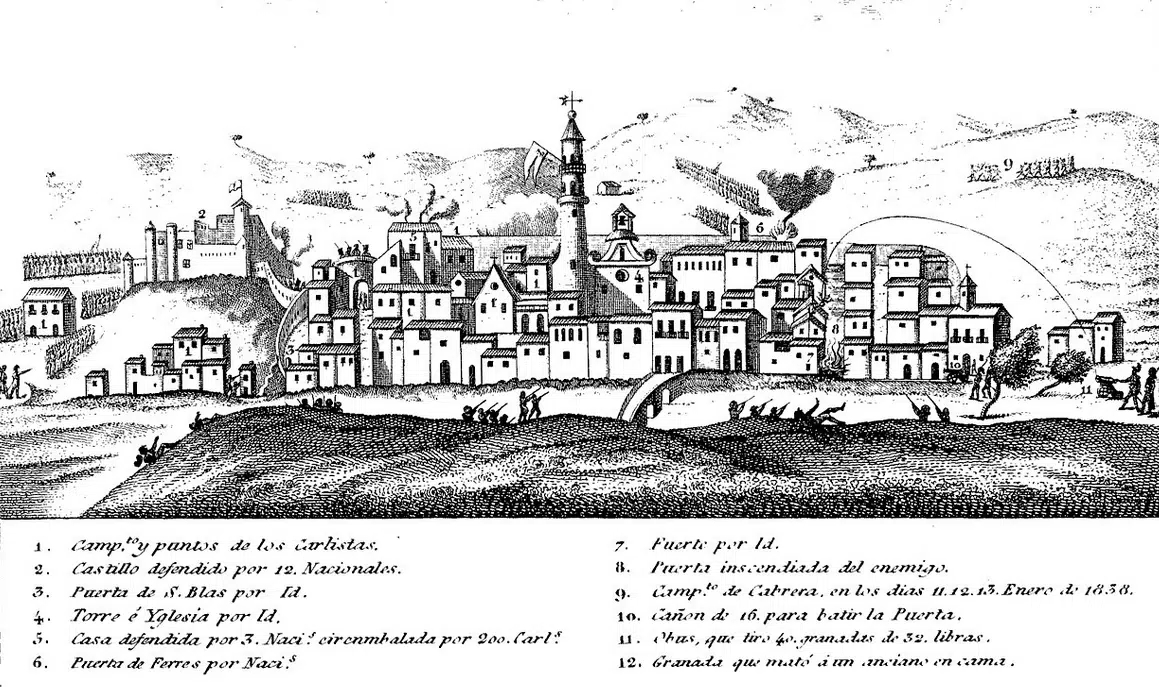 2
9
6
5
1
1
4
1
1
1
1
3
8
7
10
11
1. Camp.to y puntos de los Carlistas.
2. Castillo defendido por 12. Nacionales.
3. Puerta de S. Blas por Id.
4. Torre é Yglesia por Id.
5. Casa defendida por 3. Naci.s circnmbalada por 200. Carl.s
6. Puerta de Ferres por Naci.s
7. Fuerte por Id.
8. Puerta inscendiada del enemigo.
9. Camp.to de Cabrera, en los dias 11.12.13. Enero de 1838.
10. Cañon de 16. para batir la Puerta.
11. Obus, que tiro 40. granadas de 32. libras.
12. Granada que mató á un anciano en cama.